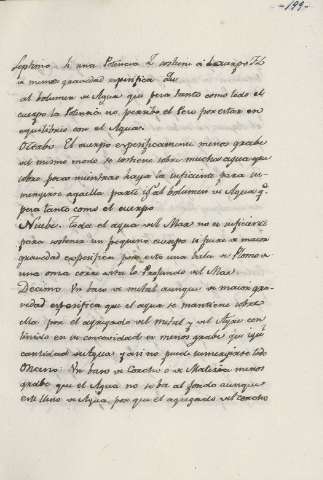 -199-
Septimo Si una Potencia q̃ sostiene á un cuerpo
de menos gravedad especifica
al bolumen de Agua que pesa tanto como todo el
cuerpo la Potencia no perdido el Peso por estar en
equilibrio con el Agua.
Octabo. El cuerpo especificamente menos grabe
del mismo modo se sostiene sobre mucha agua que
sobre poca mientras haya la suficiente para su-
mergirse aquella parte ygual bolumen de Agua q̃
pesa tanto como el cuerpo
Nuebe. Toda el agua del Mar no es suficiente
para sostener un pequeño cuerpo si fuese de maior
gravedad especifica por esto una bala de Plomo de
una onza corre asta lo Profundo del Mar.
Decimo. Un baso de metal aunque de maior gra-
vedad especifica que el agua se mantiene sobre
ella por el agregado del metal y del Ayre con-
tenido en su concavidad es menos grabe que igual
cantidad de Agua y asi no puede sumergirse todo
Onceno. Un baso de Corcho o de Materia menos
grabe que el Agua no se ba al fondo aunque
esté lleno de Agua por que el agregado del corcho